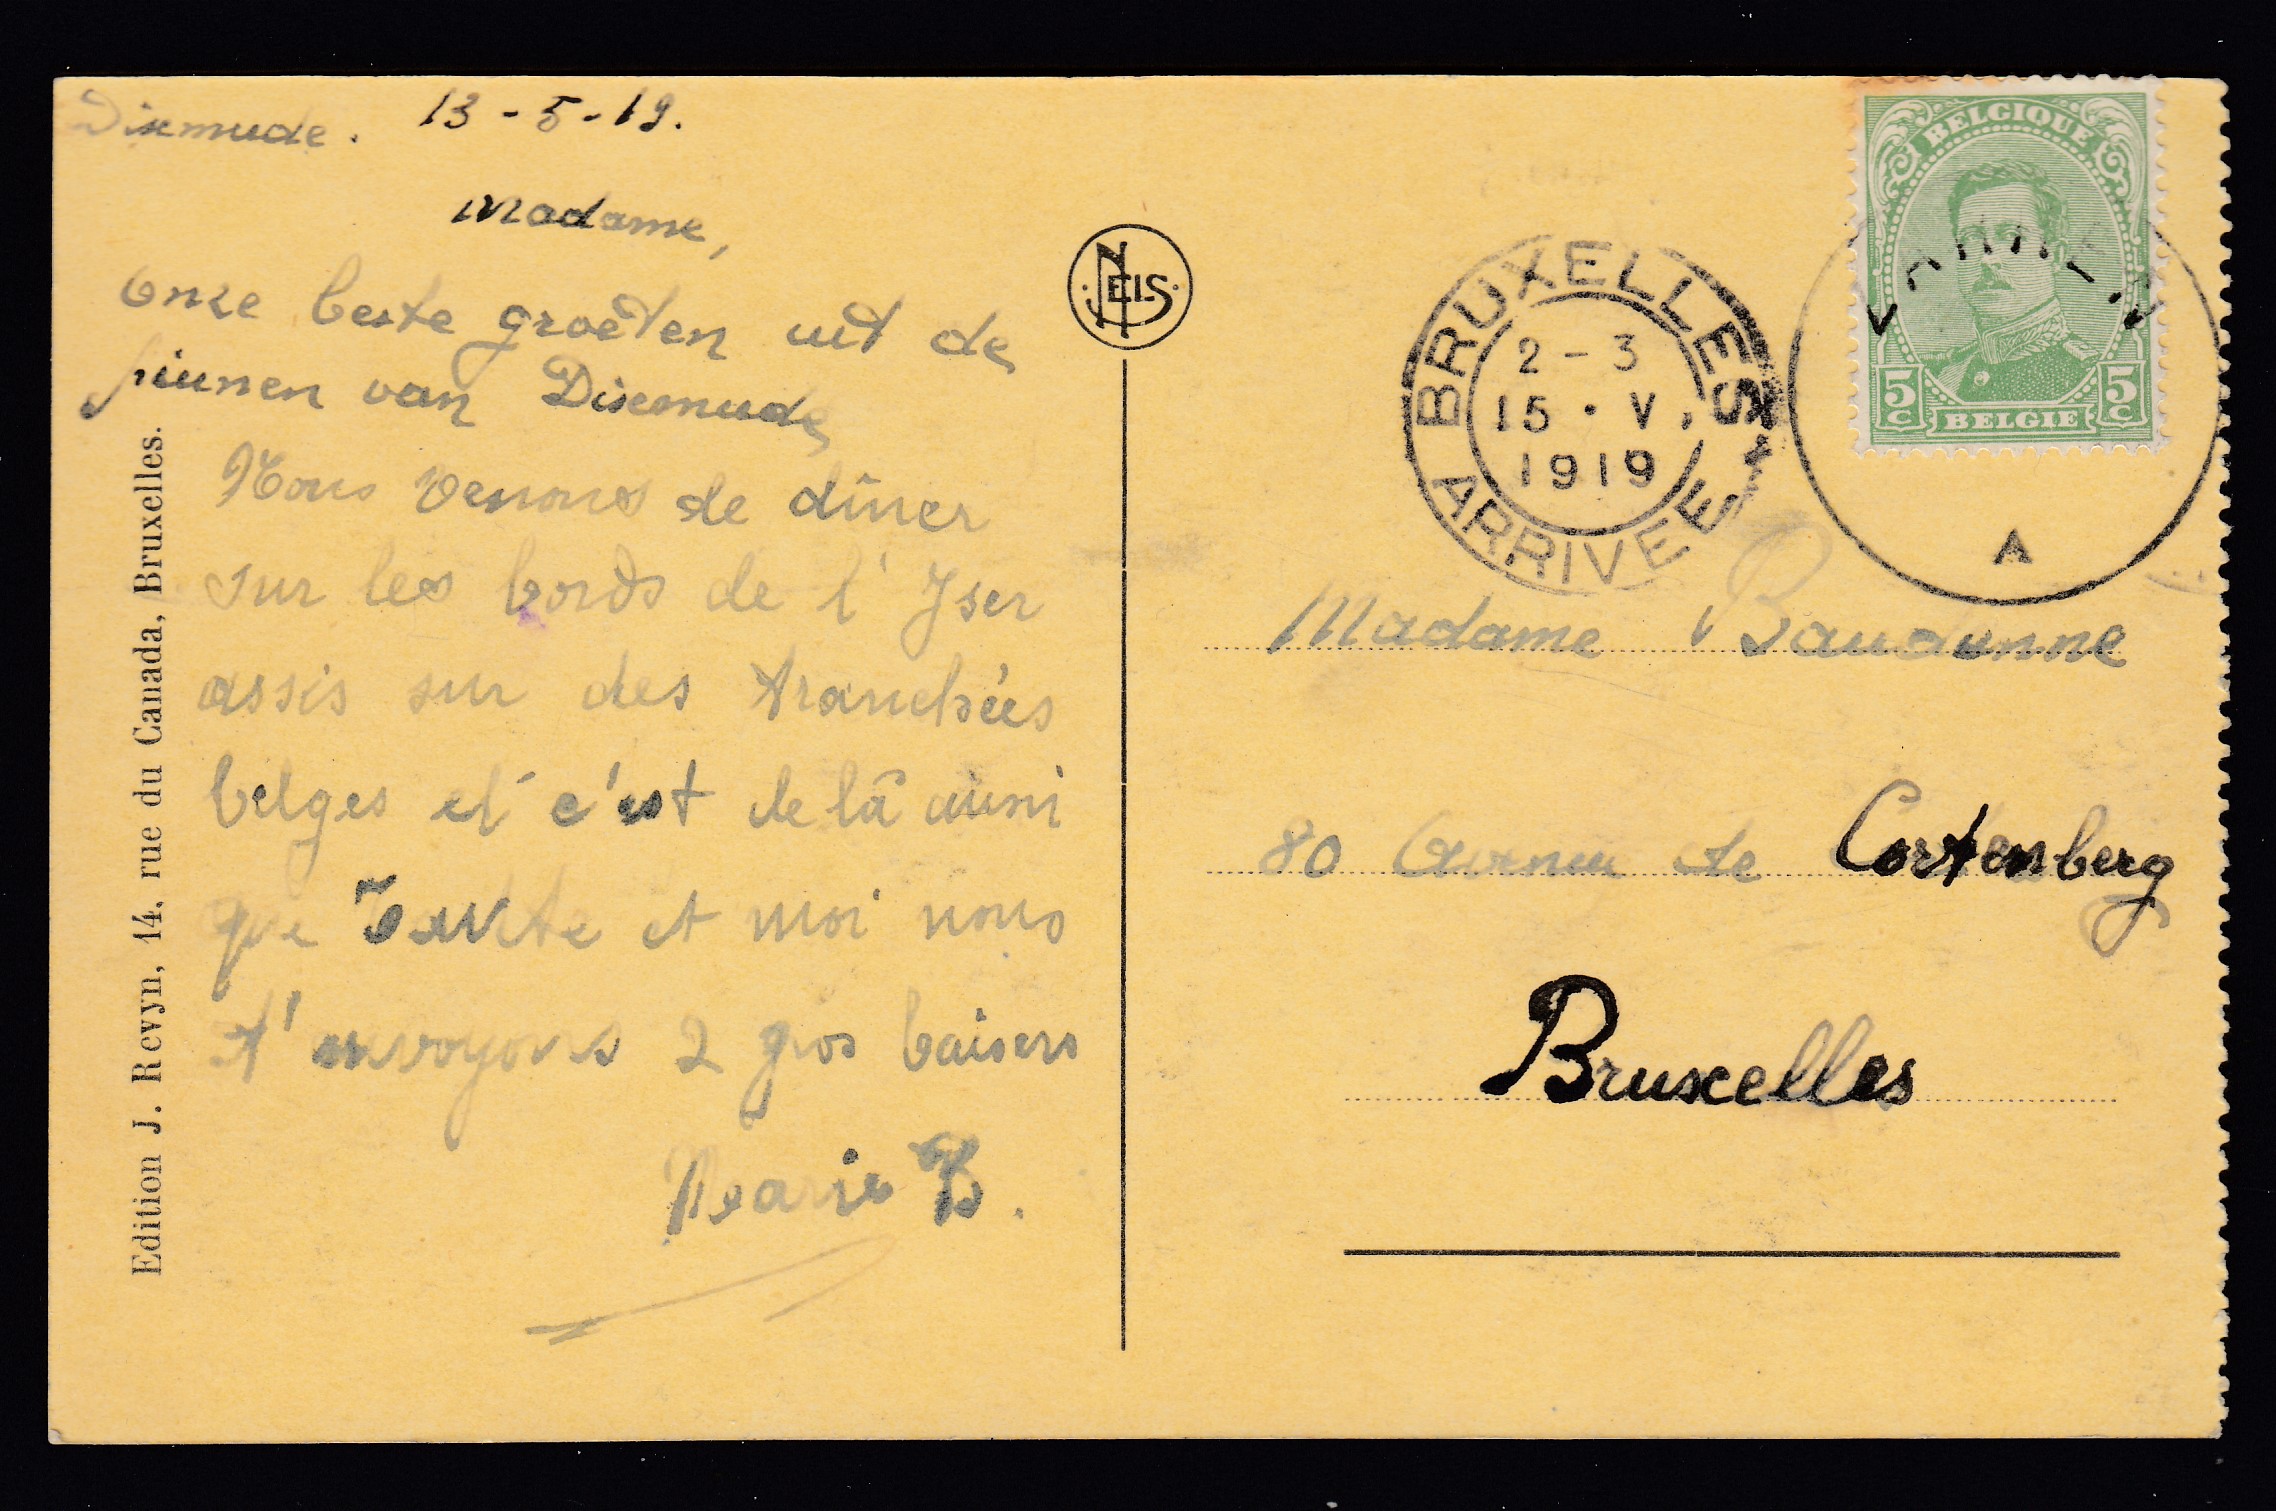 Dixmude. 13-5-19.
Madame,
onze beste groeten uit de
puinen van Dixmude
Nous venons de dîner
sur les bords de l'Yser
assis sur des tranchées
belges et c'est de là aussi
que Tante et moi nous
t'envoyons 2 gros baisers
Marie
Edition J. Revyn, 14, rue du Canada, Bruxelles.
NELS
BRUXELLES
2-3
15 · V.
1919
ARRIVEE
BELGIQUE
5c BELGIE 5c
A
Madame
80 Avenue de Cortenberg
Bruxelles